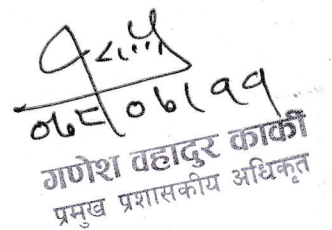 ०७८।०७।११
गणेश वहादुर कार्की
प्रमुख प्रशासकीय अधिकृत